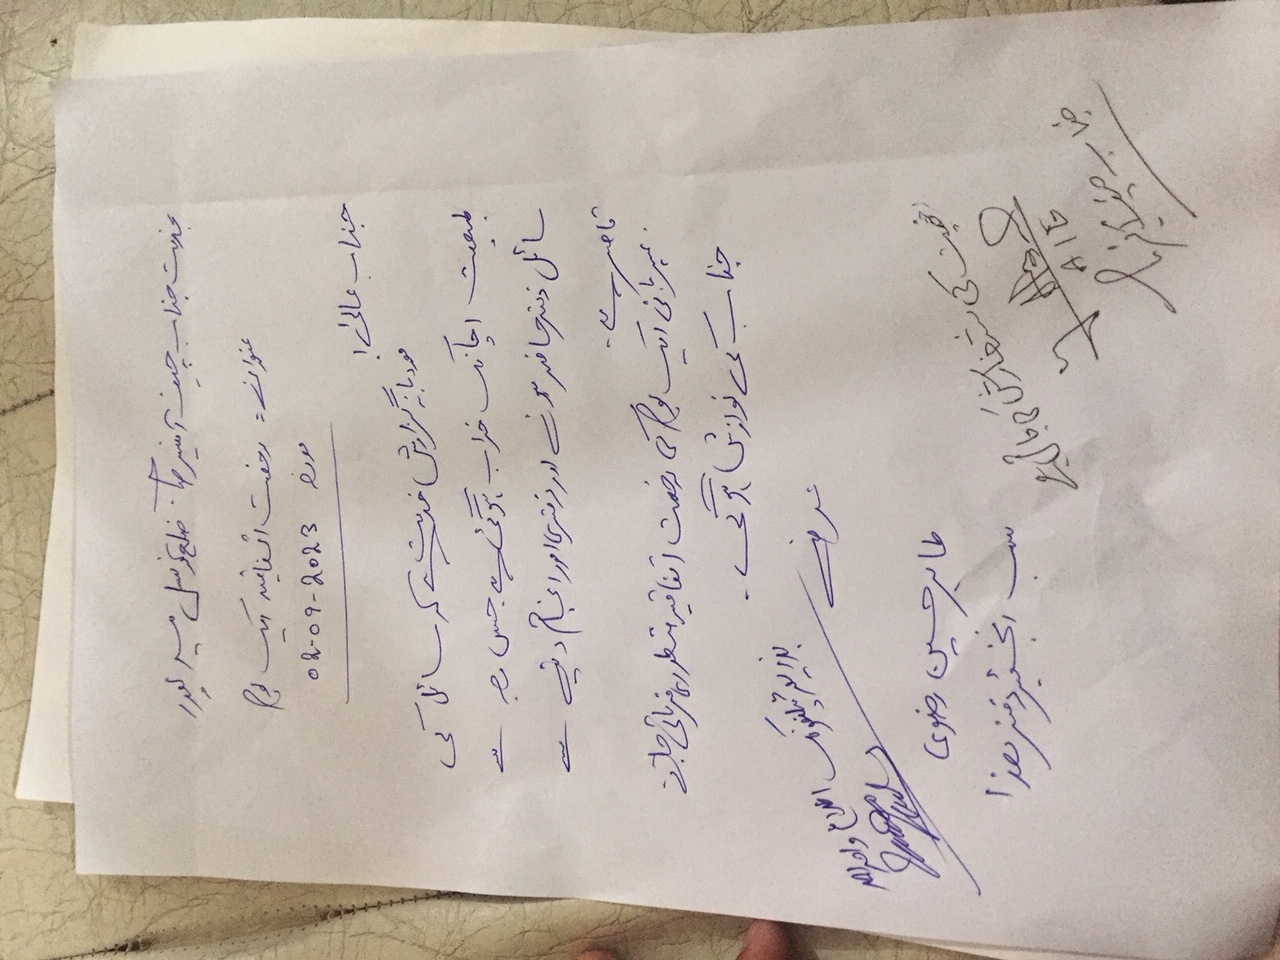 بخدمت جناب چیف آفیسر صاحب ضلع کونسل میر پور
عنوان:۔ رخصت اتفاقیہ ایک یوم
مورخہ 02-09-2023
جناب عالیٰ!
مودبانہ گزارش خدمت ہے کہ سائل کی
طبیعت اچانک خراب ہوگئی ہے جس وجہ سے
سائل دفتر حاضر ہونے اور دفتری امور انجام دینے سے
قاصر ہے۔
بمہربانی ایک یوم کی رخصت اتفاقیہ منظوری فرمائی جائے
جناب کی نوازش ہوگی۔
عرضے
بذریعہ ٹیلیفون اطلاع
طاہر حسین رضوی
سب انجینئر دفتر ھذا
رخصت کی سفارش کی جاتی ہے
AIE
جناب چیف آفیسر صاحب